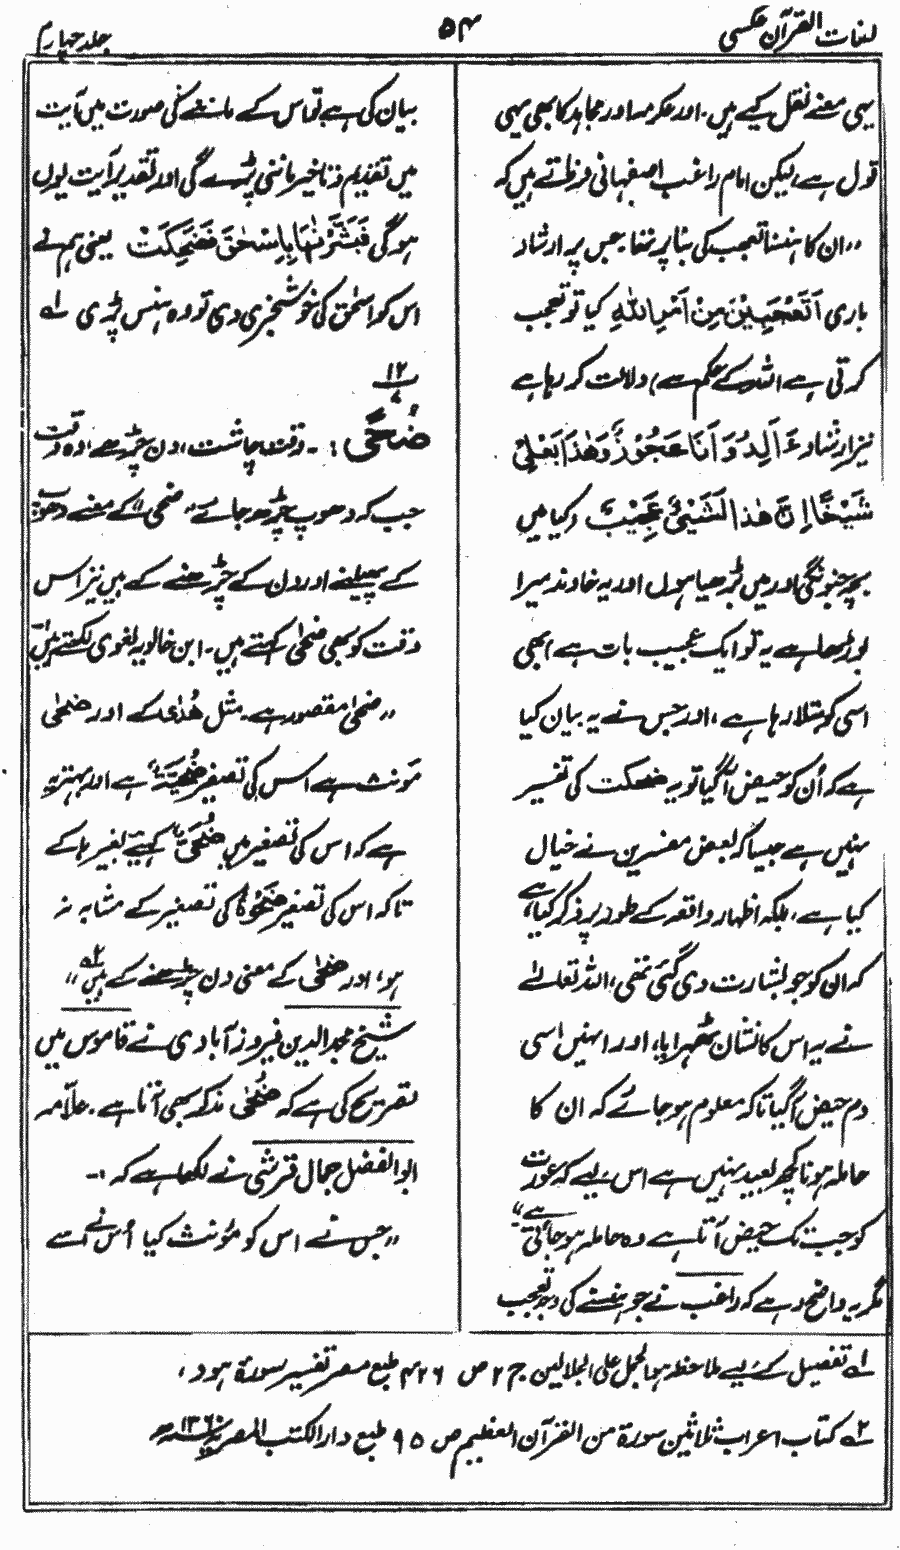 لغات القرآن عکسی
۵۴
جلد چہارم
یہی معنے نقل کیے ہیں۔ اور عکرمہ اور مجاہد کا بھی یہی
قول ہے، لیکن امام راغب اصفہانی فرماتے ہیں کہ
،،ان کا ہنسنا تعجب کی بنا پر تھا۔ جس پر ارشاد
باری اَتَعْجَبِیْنَ مِنْ اَمْرِ اللّٰہِ کیا تو تعجب
کرتی ہے اللہ کے حکم سے) دلالت کر رہا ہے
نیز ارشاد ءَ اَلِدُ وَ اَنَا عَجُوْزٌ وَّهٰذَا بَعْلِیْ
شَیْخًا اِنَّ هٰذَا لَشَیْءٌ عَجِیْبٌ (کیا میں
بچہ جنونگی اور میں بڑھیا ہوں اور یہ خاوند میرا
بوڑھا ہے یہ تو ایک عجیب بات ہے) بھی
اسی کو بتلا رہا ہے، اور جس نے یہ بیان کیا
ہے کہ اُن کو حیض آگیا تو یہ ضحکت کی تفسیر
نہیں ہے جیسا کہ بعض مفسرین نے خیال
کیا ہے، بلکہ اظہار واقعہ کے طور پر ذکر کیا ہے،
کہ ان کو جو بشارت دی گئی تھی، اللہ تعالےٰ
نے یہ اس کا نشان ٹھہرایا، اور انہیں اسی
دم حیض آگیا تاکہ معلوم ہو جائے کہ ان کا
حاملہ ہونا کچھ بعید نہیں ہے اس لیے کہ عورت
کو جب تک حیض آتا ہے وہ حاملہ ہو جاتی ہے"
مگر یہ واضح رہے کہ راغب نے جو ہنسنے کی وجہ تعجب
بیان کی ہے تو اس کے ماننے کی صورت میں آیت
میں تقدیم و تاخیر ماننی پڑے گی اور تقدیر آیت یوں
ہوگی فَبَشَّرْنٰهَا بِاِسْحٰقَ فَضَحِکَتْ یعنی ہم نے
اس کو اسحٰق کی خوشخبری دی تو وہ ہنس پڑی لہ
۱۲
ضُحًی ؛۔ وقتِ چاشت، دن چڑھے، وہ وقت
جب کہ دھوپ چڑھ جائے،، ضحی،، کے معنے دھوپ
کے پھیلنے اور دن کے چڑھنے کے ہیں نیز اس
وقت کو بھی ضحٰی کہتے ہیں۔ ابن خالویہ لغوی لکھتے ہیں:۔
،،ضحٰی مقصور ہے۔ مثل هُدٰی کے اور ضحٰی
مؤنث ہے اس کی تصغیر ضُحَیَّۃ ہے اور بہتر یہ
ہے کہ اس کی تصغیر میں ضُحَیّ کہیے بغیر ہا کے
تاکہ اس کی تصغیر ضَحْوَۃ کی تصغیر کے مشابہ نہ
ہو، اور ضُحٰی کے معنی دن چڑھنے کے ہیں ۲ہ ،،
شیخ مجد الدین فیروز آبادی نے قاموس میں
تصریح کی ہے کہ ضُحٰی مذکر بھی آتا ہے۔ علّامہ
ابو الفضل جمال قرشی نے لکھا ہے کہ :۔
،،جس نے اس کو مؤنث کیا اُس نے اسے
لہ تفصیل کے لیے ملاحظہ ہو الجمل علی الجلالین ج ۲ ص ۴۲۶ طبع مصر تفسیر سورۃ ہود،
۲ہ کتاب اعراب ثلاثین سورۃ من القرآن العظیم ص ۹۵ طبع دار الکتب المصریہ ۱۳۶۰ھ